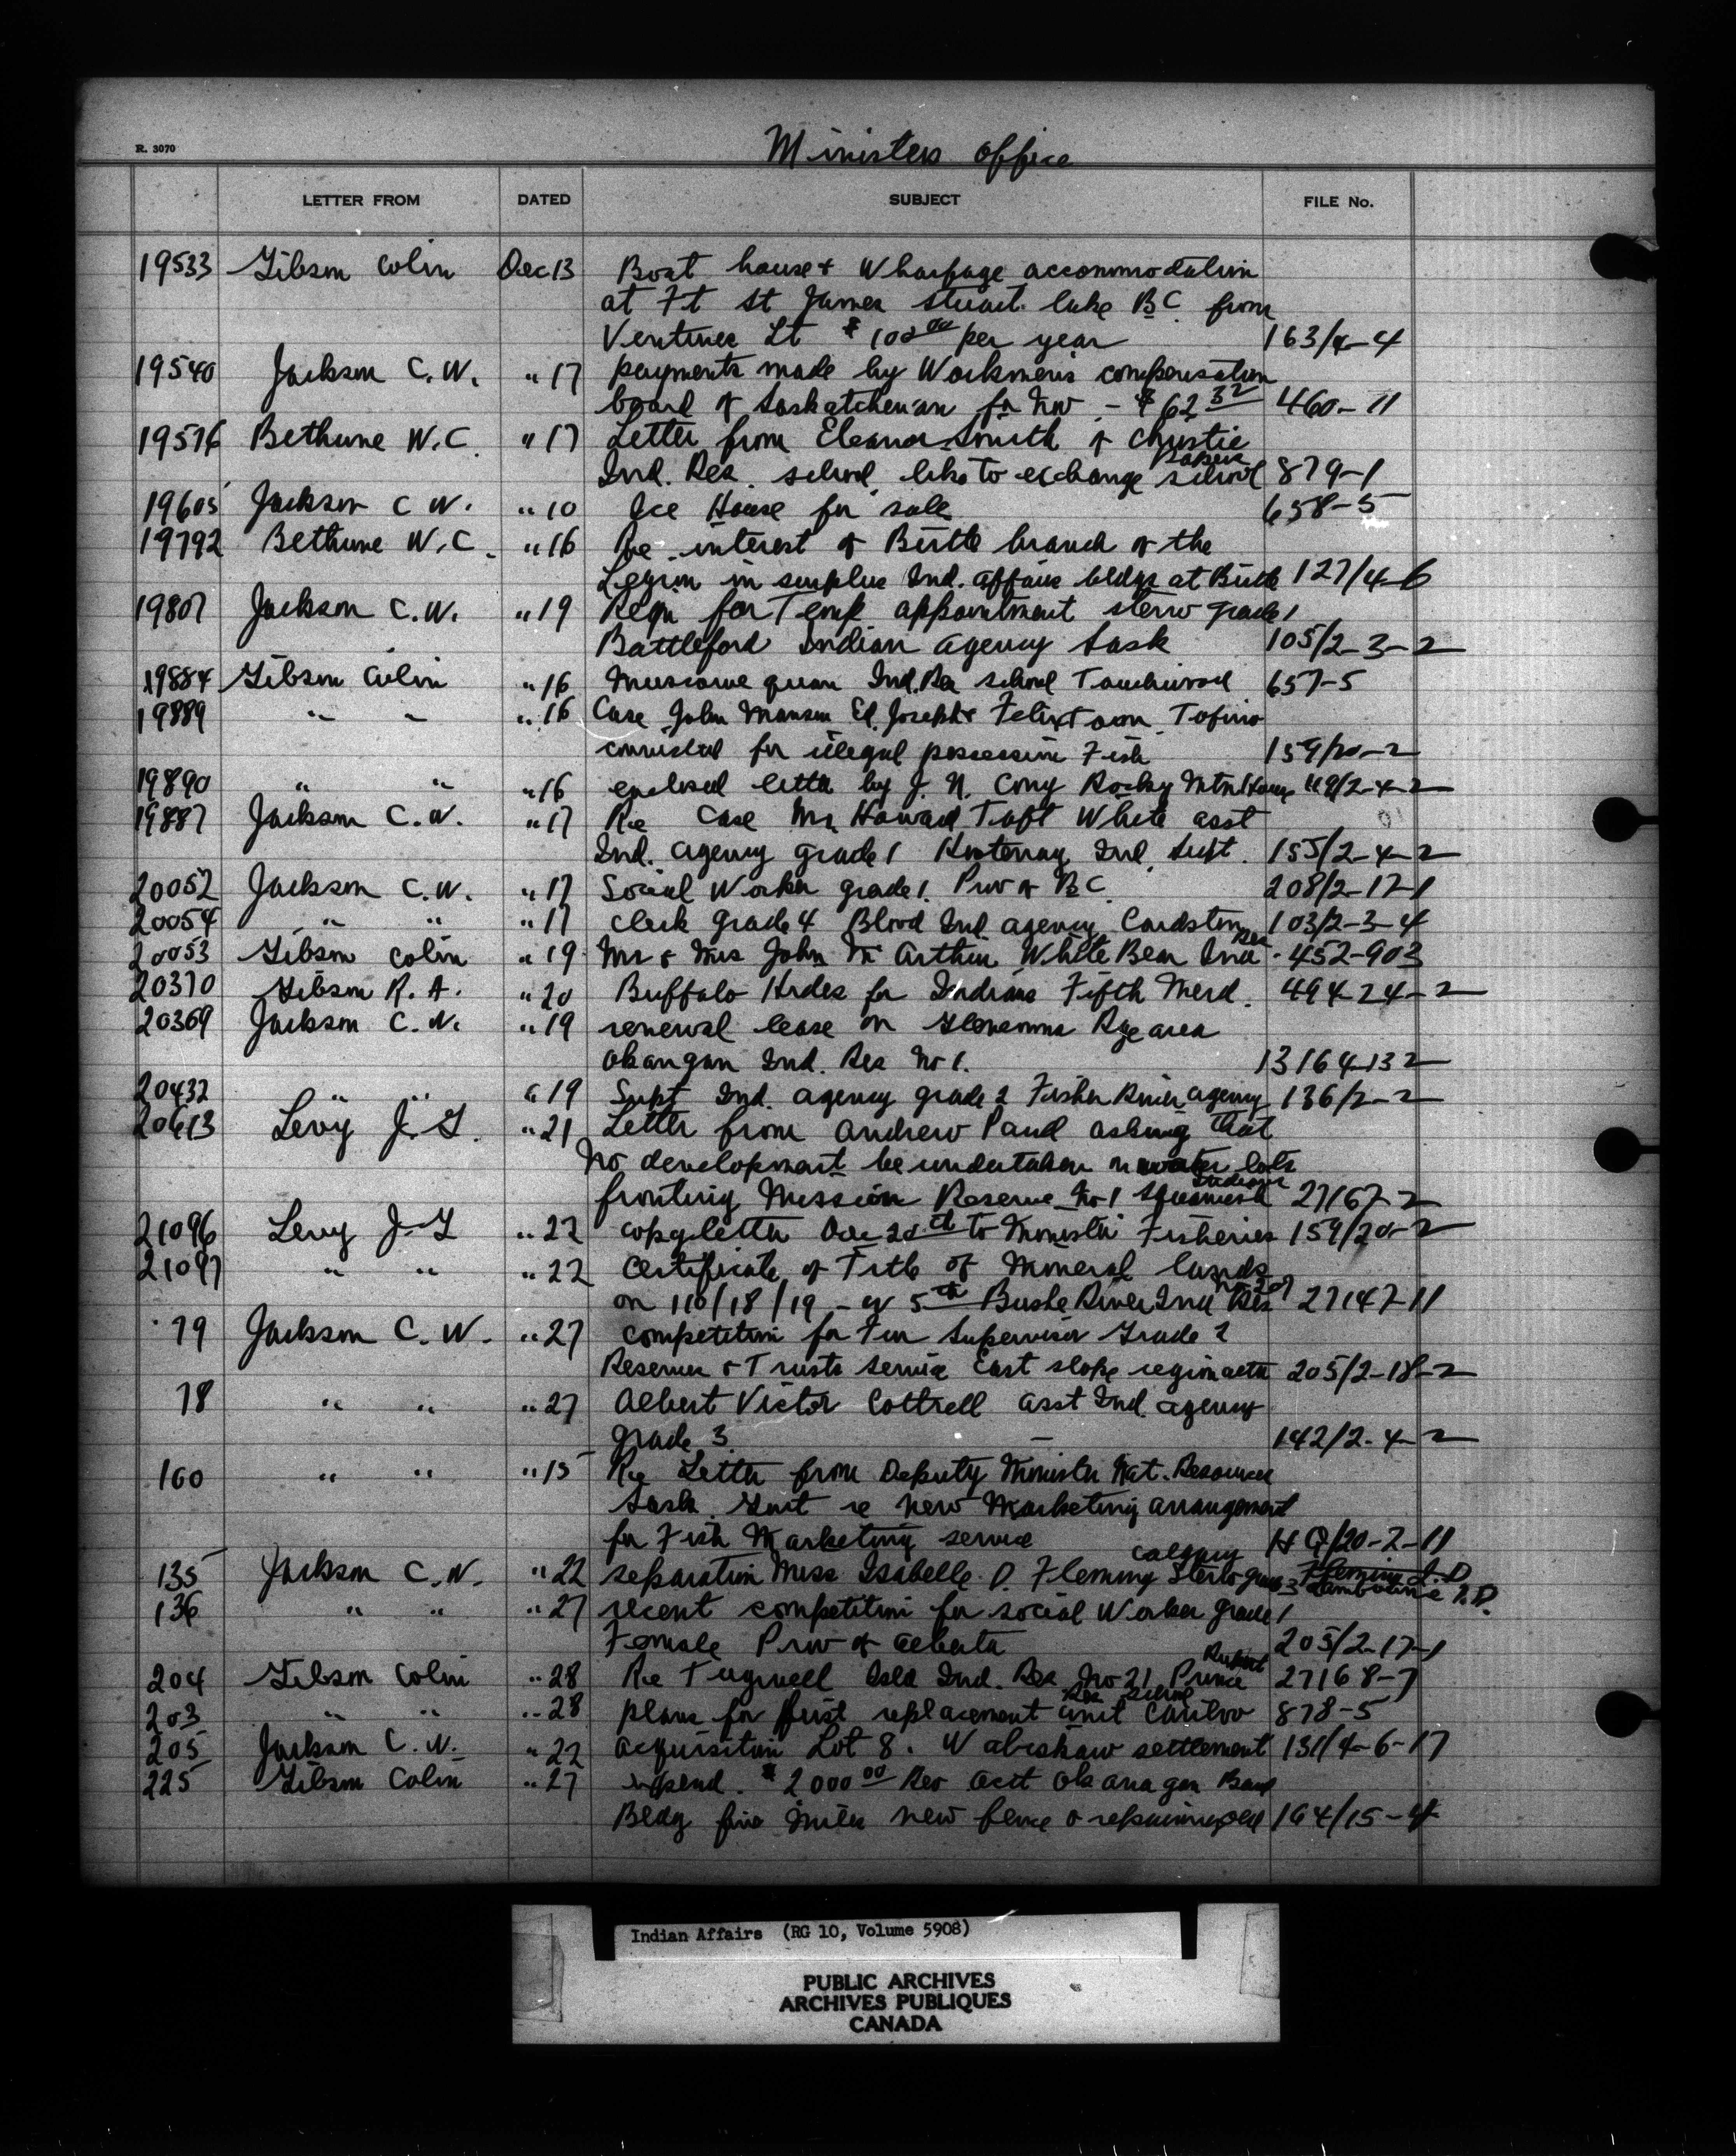 Ministers office
R. 3070
LETTER FROM DATED SUBJECT FILE No.
19533 Gibson Colin Dec 13 Boat house & Wharfage accommodation
at Ft St James Stuart lake B C from
Ventures Lt $ 100 00 per year 163/4-4
19540 Jackson C. W. " 17 payments made by Workmen's compensation
board of Saskatchewan for Nov - $ 62 32 460-11
19576 Bethune W. C. " 17 Letter from Eleanor Smith of Christie
Ind. Res. school, like to exchange papers school 879-1
19605 Jackson C W. " 10 Ice House for sale 658-5
19792 Bethune W. C. " 16 Re interest of Birtle branch of the
Legion in surplus Ind. affairs bldgs at Birtle 127/4-6
19807 Jackson C. W. " 19 Reqn for Temp appointment steno grade 1
Battleford Indian agency Sask 105/2-3-2
19884 Gibson Colin " 16 Muscowequan Ind. Res school Touchwood 657-5
19889 " " " 16 Case John Manson Ed. Joseph & Felix Toon Tofino
convicted for illegal possession Fish 159/20-2
19890 " " " 16 enclosed letter by J. N. Rocky Mtn House 119/2-4-2
19887 Jackson C. W. " 17 Re Case Mr Howard Taft White asst
Ind. agency grade 1 Kootenay Ind. Supt. 155/2-4-2
20052 Jackson C. W. " 17 Social Worker grade 1. Prov of B C 208/2-17-1
20054 " " " 17 Clerk grade 4 Blood Ind agency Cardston 103/2-3-4
20053 Gibson Colin " 19 Mr & Mrs John McArthur White Bear Ind Res - 452-903
20370 Gibson R. A. " 20 Buffalo Hides for Indians Fifth Merd. 494-24-2
20369 Jackson C. W. " 19 renewal lease on Glenemma Rge area
Okangan Ind. Res No 1. 13164-132
20432 " " " 19 Supt Ind. agency grade 2 Fisher River agency 136/2-2
20613 Levy J. G. " 21 Letter from Andrew Paud asking that
no development be undertaken on water lots
fronting Mission Reserve No 1 Squamish Indians 27167-2
21096 Levy J. G " 22 copy letter Dec 20th to Minister Fisheries 159/20-2
21097 " " " 22 Certificate of Title of Mineral lands
on 110/18/19 - W 5th Bushe River Ind Res No 207 27147-11
79 Jackson C. W. " 27 competition for Fur Supervisor Grade 2
Reserves & Trusts service East slope region 205/2-18-2
78 " " " 27 Albert Victor Cottrell asst Ind. agency
grade 3. 142/2-4-2
100 " " " 15 Re Letter from Deputy Minister Nat. Resources
Sask. Govt re new Marketing arrangement
for Fish Marketing service H Q/20-2-11
135 Jackson C. W. " 22 separation Miss Isabelle D. Fleming Calgary Steno grade 3 Fleming I. D
136 " " " 27 recent competition for social Worker grade 1
Female Prov of Alberta 205/2-17-1
204 Gibson Colin " 28 Re Tugwell Isld Ind. Res No 21 Prince Rupert 27168-7
203 " " " 28 plans for first replacement unit Cariboo Res School 878-5
205 Jackson C. W. " 22 acquisition Lot 8. Wabishaw settlement 131/4-6-17
225 Gibson Colin " 27 expend. $ 2000 00 Rev acct Okanagan Band
Bldg five miles new fence & repairing old 164/15-4
Indian Affairs (RG 10, Volume 5908)
PUBLIC ARCHIVES
ARCHIVES PUBLIQUES
CANADA